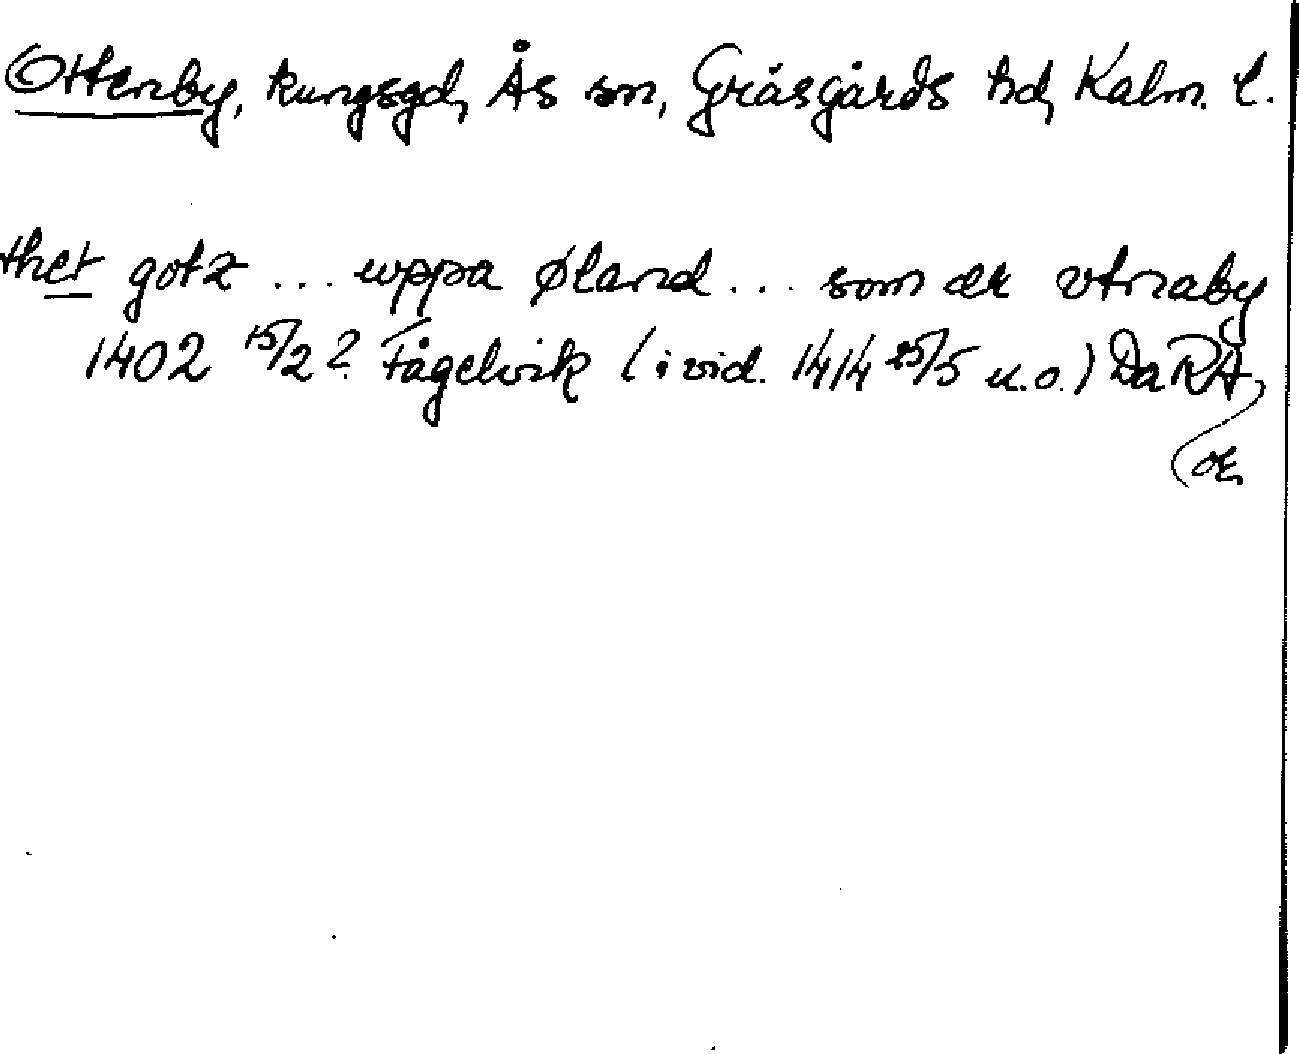 Ottenby, kungsgd, Ås sn, Gräsgårds hd, Kalm. l.
thet gotz ... uppa øland ... som ær vtnaby
1402 15/2? Fågelvik (i vid. 1414 25/5 u.o.) DaRA,
or.